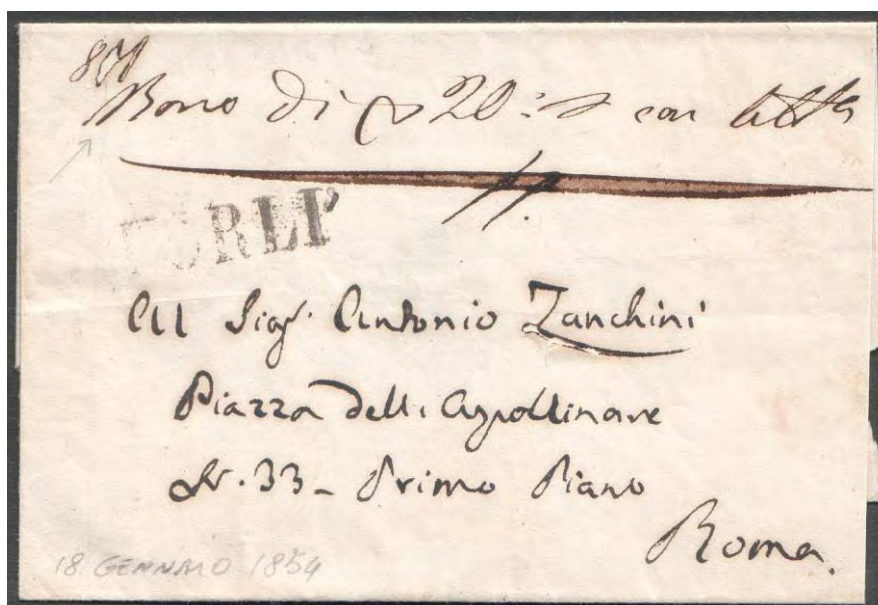 Bono di 20: con
FORLI'
All Sigr. Antonio Zanchini
Piazza dell: Apollinare
N. 33 - Primo Piano
Roma.
18 GENNAIO 1854